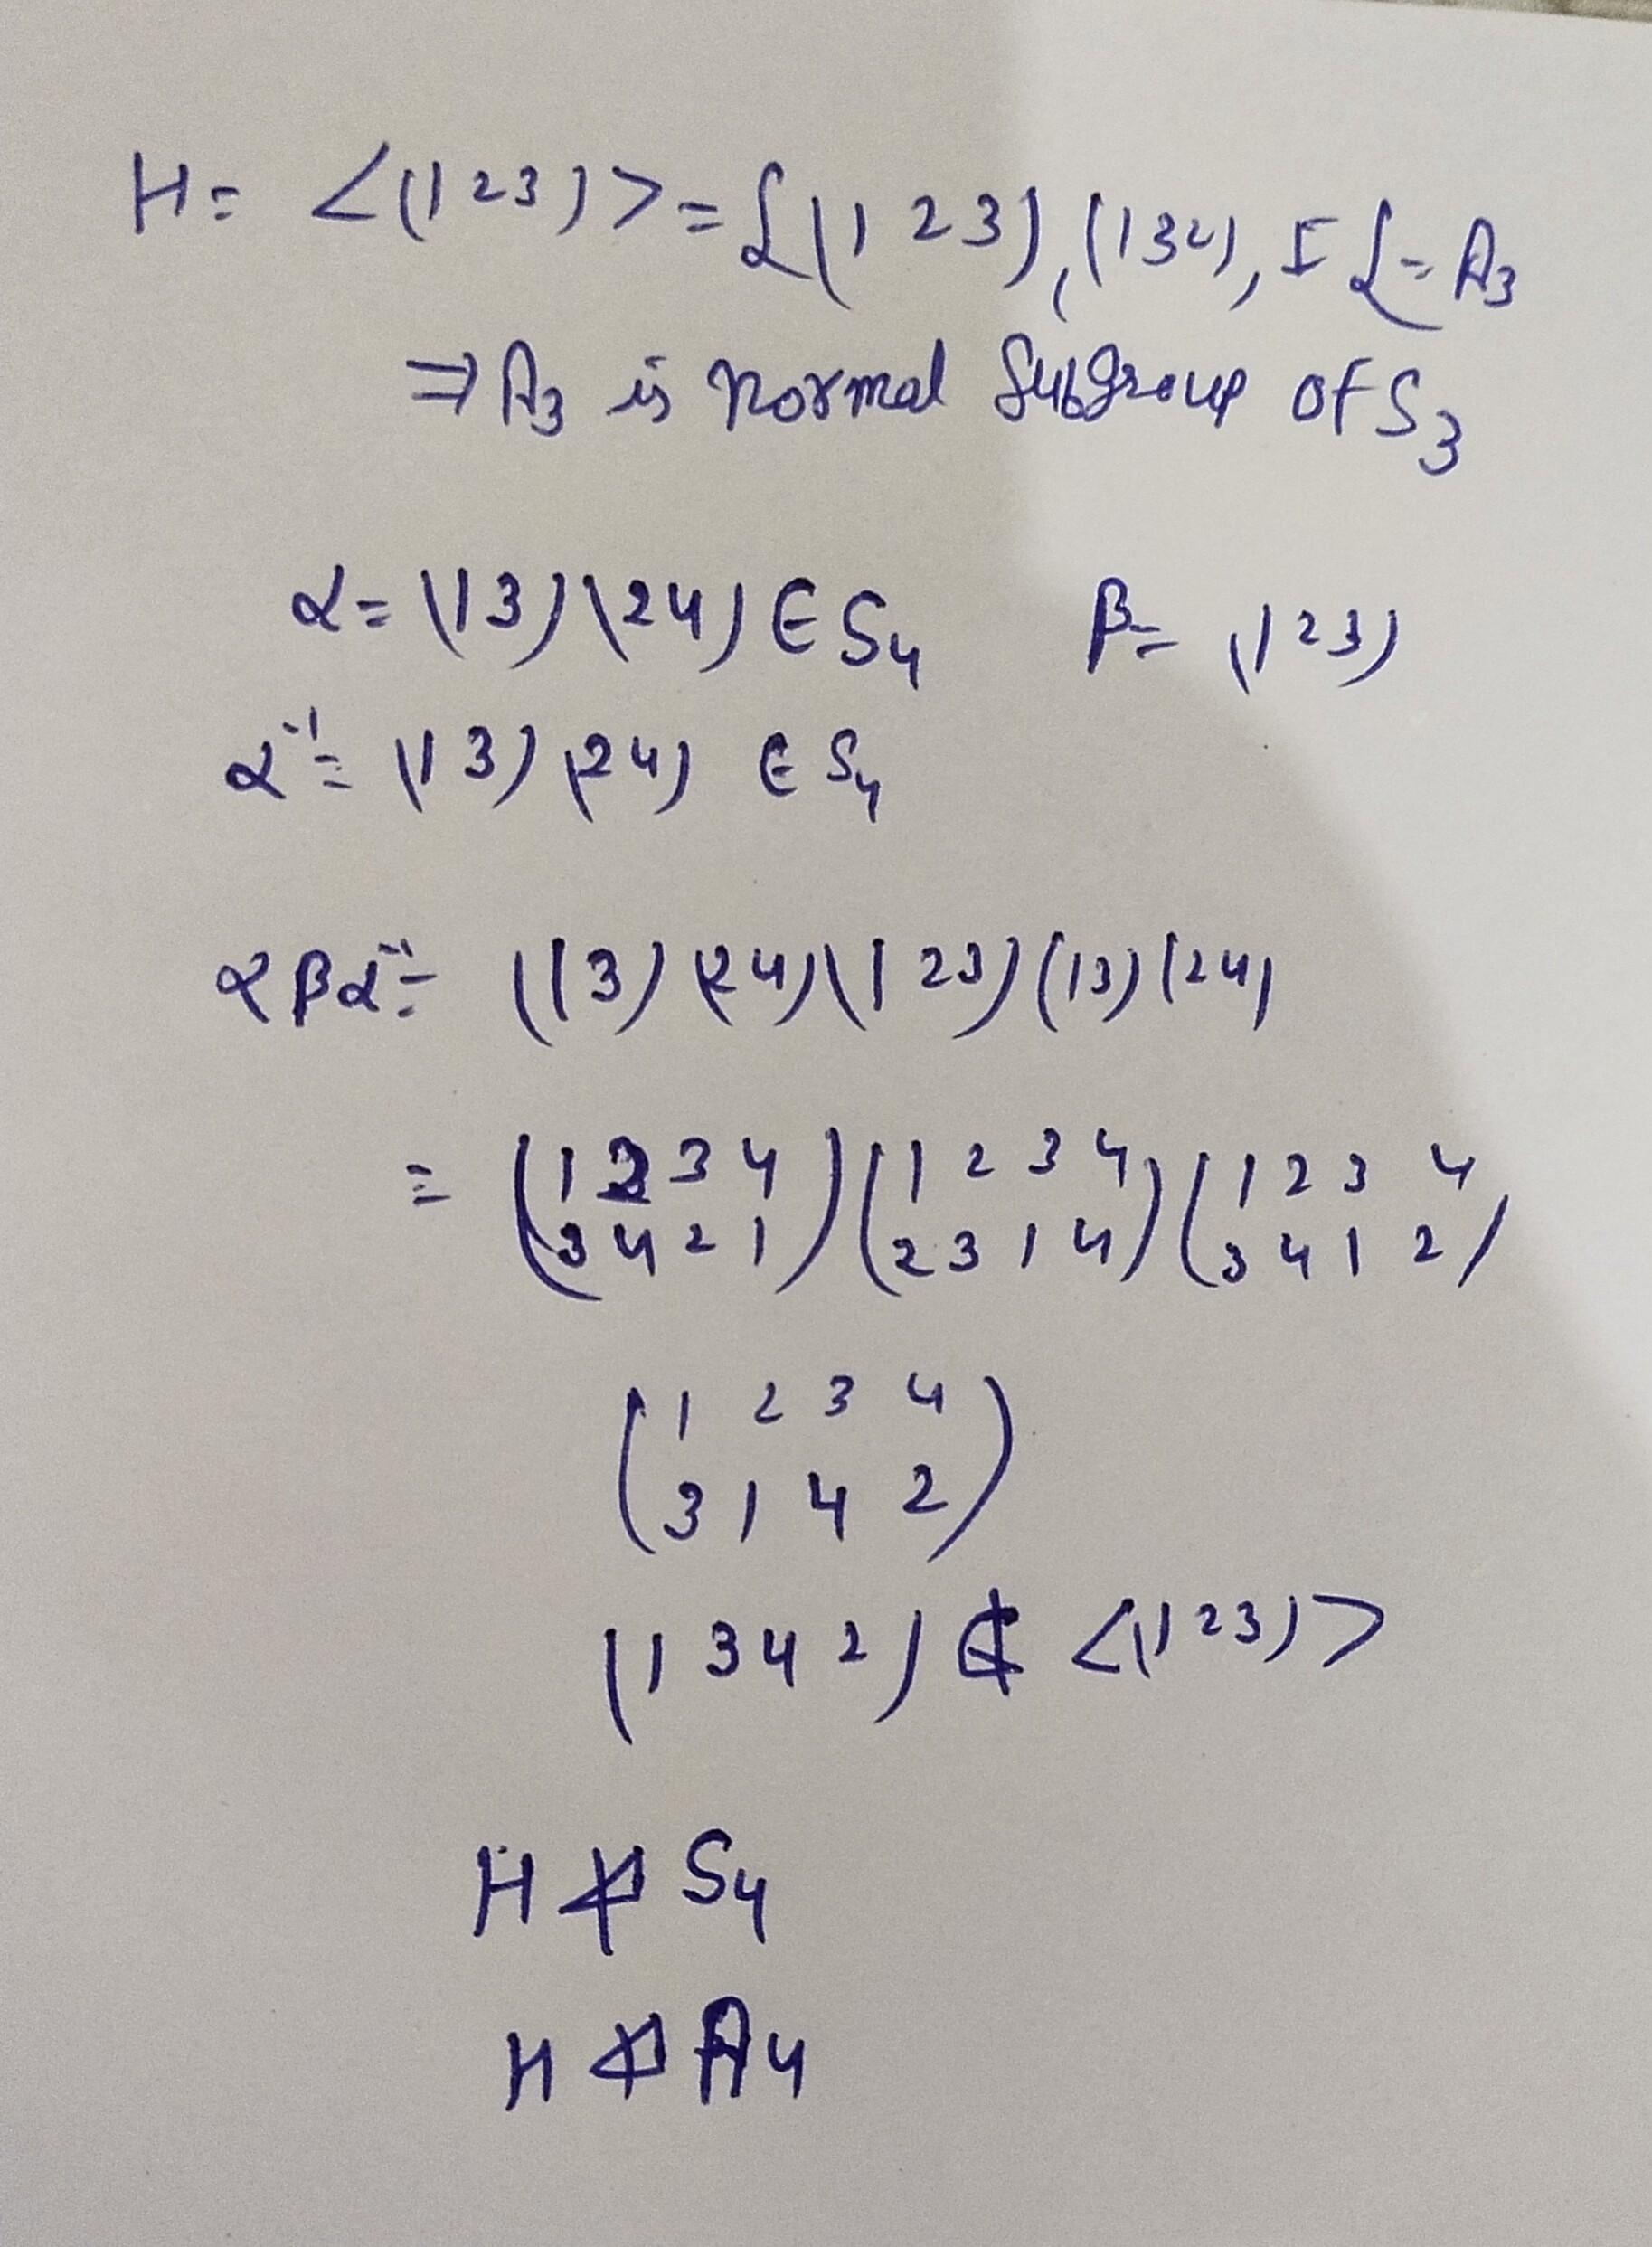 H = <(1 2 3)> = {(1 2 3), (1 3 2), I} = A₃
⇒ A₃ is normal Subgroup of S₃
α = (1 3)(2 4) ∈ S₄ β = (1 2 3)
α⁻¹ = (1 3)(2 4) ∈ S₄
αβα⁻¹ = (1 3)(2 4)(1 2 3)(1 3)(2 4)
= (1 2 3 4 / 3 4 2 1)(1 2 3 4 / 2 3 1 4)(1 2 3 4 / 3 4 1 2)
(1 2 3 4 / 3 1 4 2)
(1 3 4 2) ∉ <(1 2 3)>
H ⋪ S₄
H ⋪ A₄